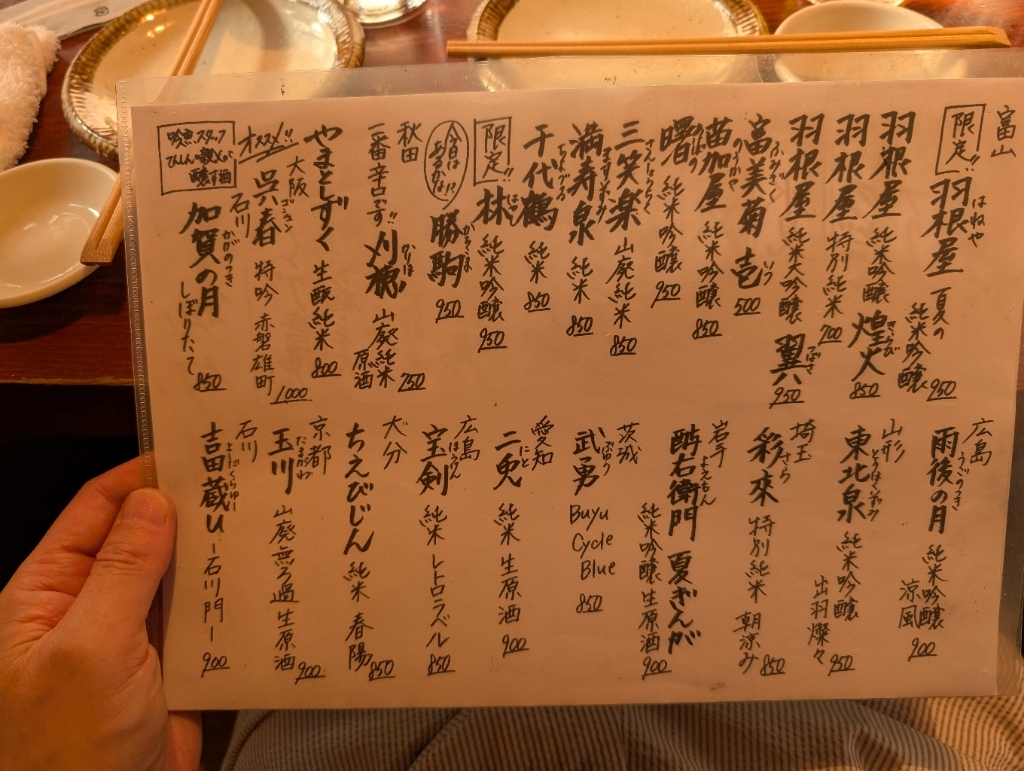 富山
限定!!
羽根屋 はねや
夏の
純米吟醸
950
羽根屋 純米吟醸 煌火 きらび 850
羽根屋 特別純米 700
羽根屋 純米大吟醸 翼 つばさ 950
富美菊 ふみぎく 壱 いつ 500
苗加屋 のうかや 純米吟醸 850
曙 あけぼの 純米吟醸 950
三笑楽 さんしょうらく 山廃純米 850
満寿泉 ますいずみ 純米 850
千代鶴 ちよづる 純米 850
限定!!
林 はやし 純米吟醸 950
今日はあるかな!?
勝駒 かちこま 950
秋田
一番辛口です!!
刈穂 かりほ 山廃純米 原酒 750
やまとしずく 生酛純米 800
オススメ!!
大阪
呉春 ゴシュン 特吟 赤磐雄町 1000
吟魚スタッフ
石川
加賀の月 かがのつき しぼりたて 850
広島
雨後の月 うごのつき 純米吟醸 涼風 900
山形
東北泉 とうほくいずみ 純米吟醸 出羽燦々 950
埼玉
彩來 さら 特別純米 朝涼み 850
岩手
酉与右衛門 よえもん 夏ぎんが
純米吟醸 生原酒 900
茨城
武勇 ぶゆう
Buyu
Cycle
Blue
850
愛知
二兎 にと 純米 生原酒 900
広島
宝剣 ほうけん 純米 レトロラベル 850
大分
ちえびじん 純米 春陽 850
京都
玉川 たまがわ 山廃無ろ過生原酒 900
石川
吉田蔵u よしだくらゆー -石川門- 900